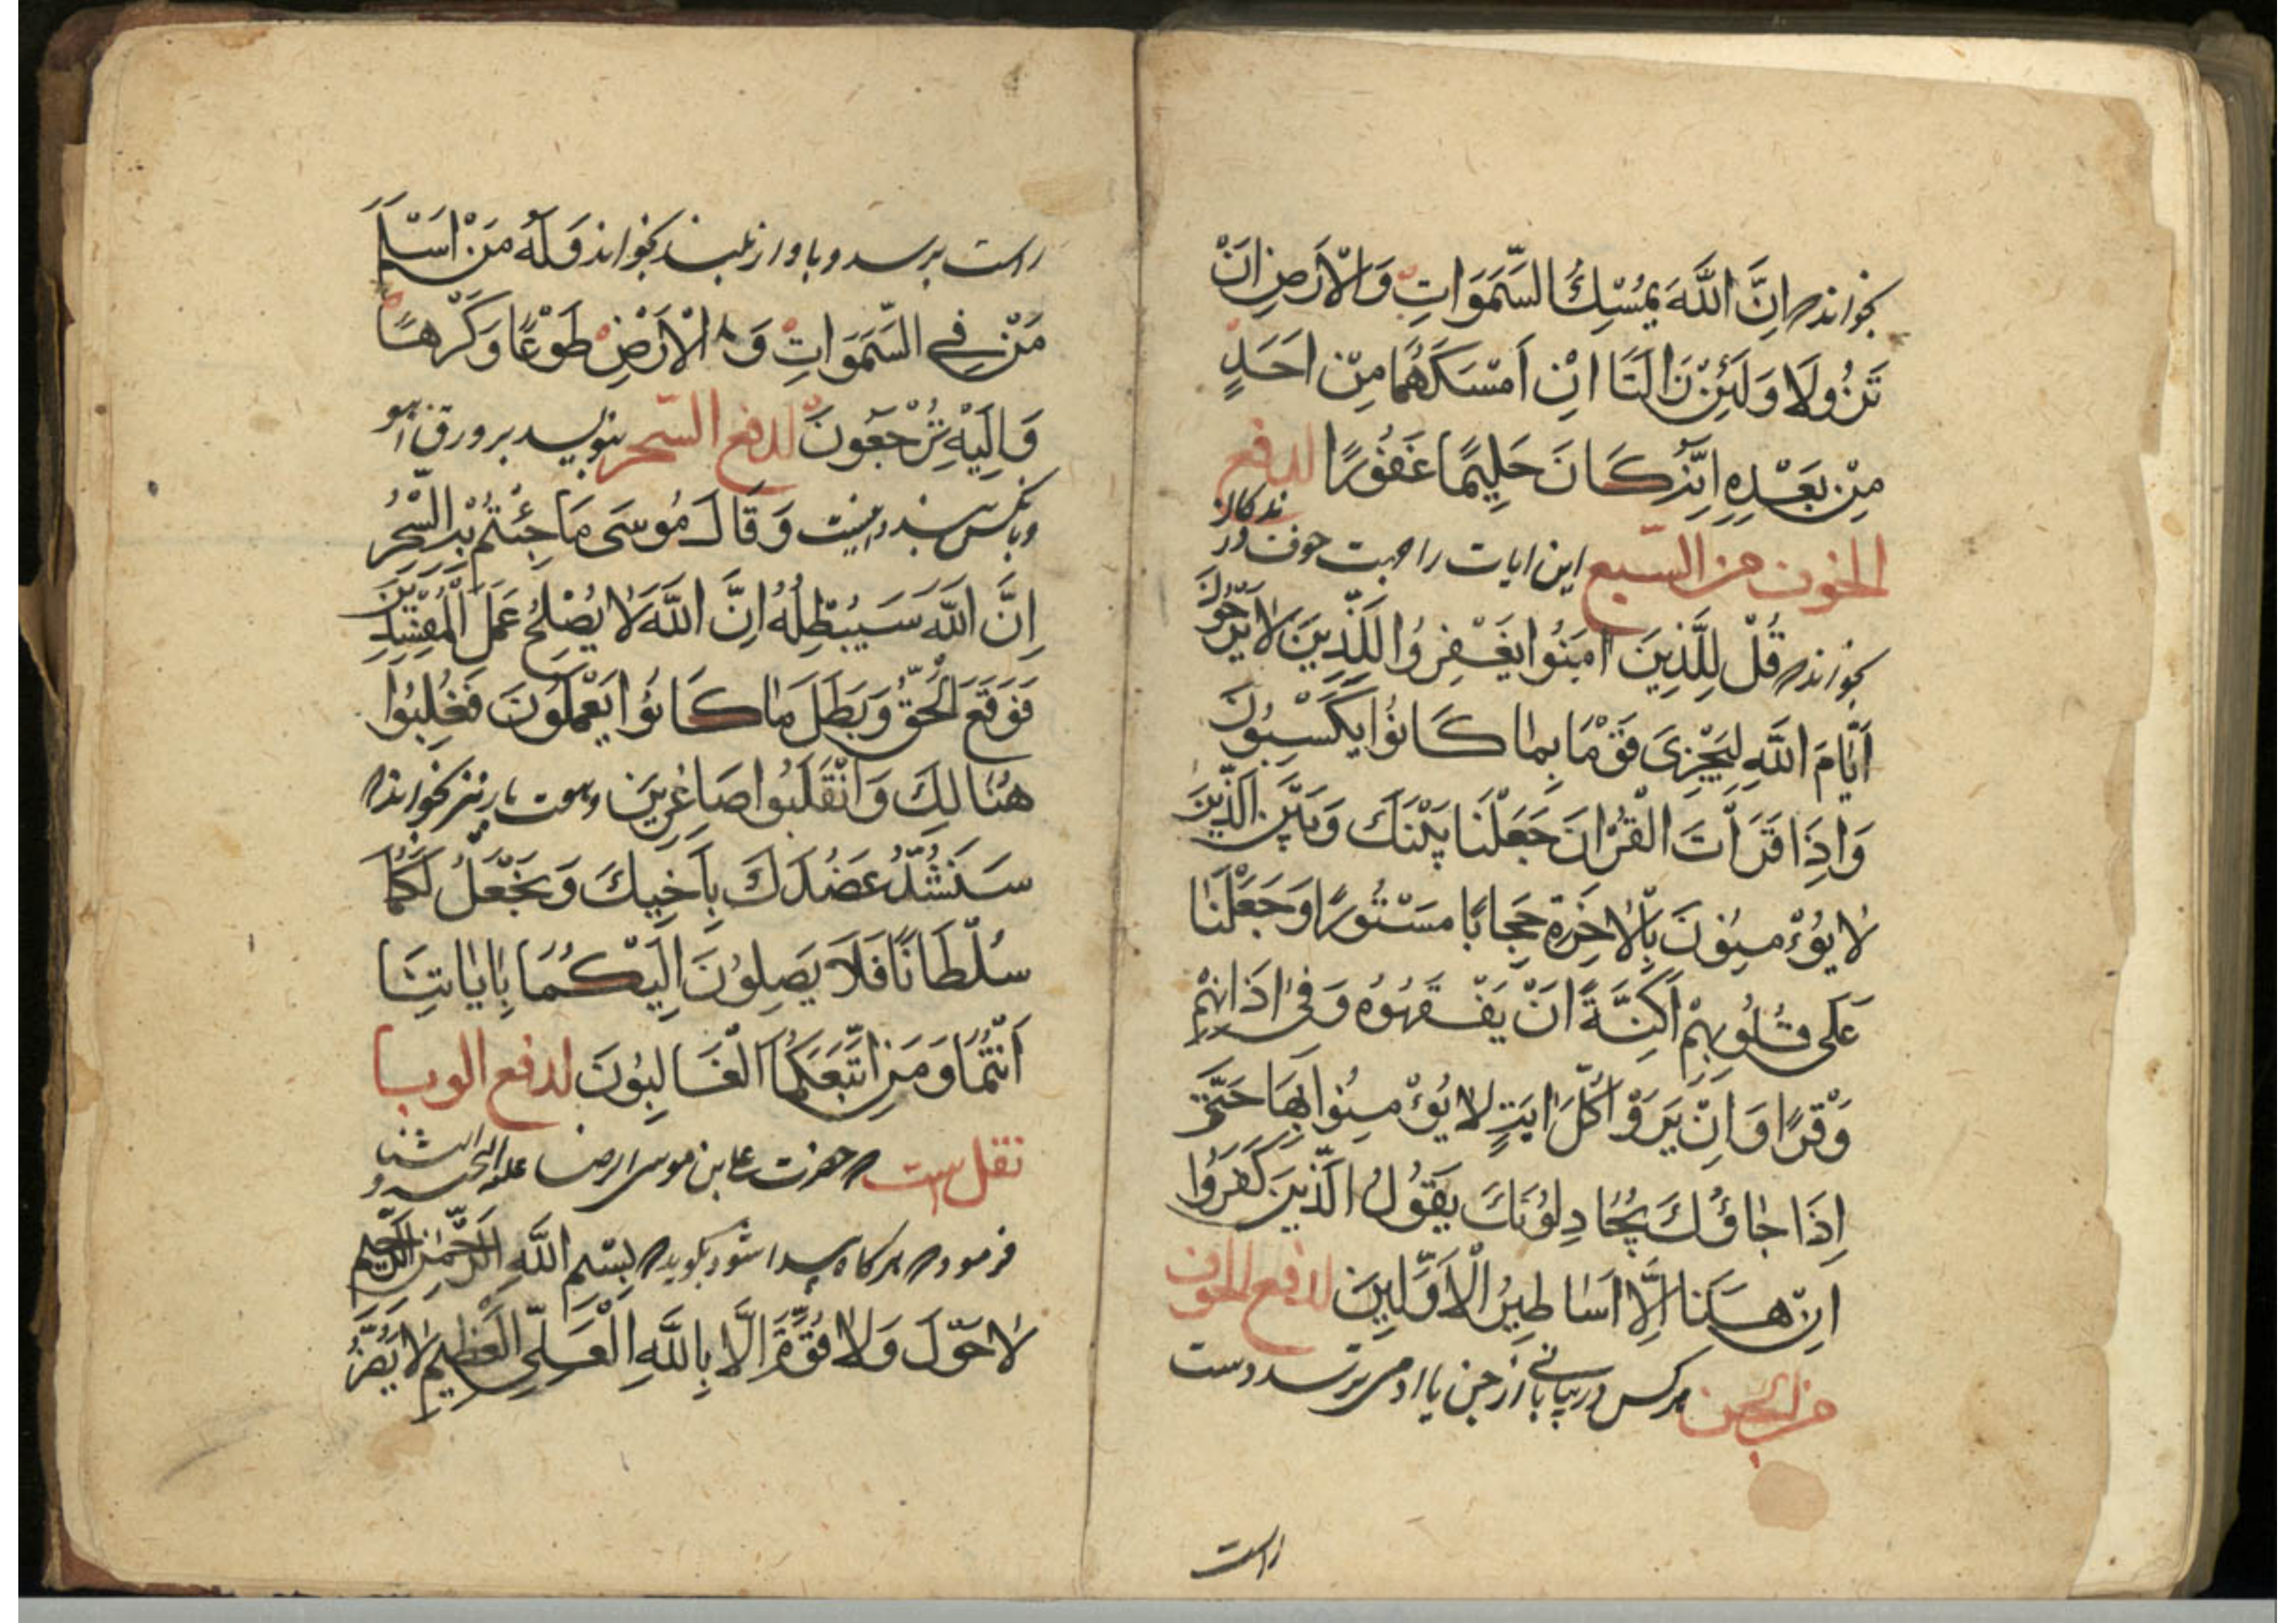 بخواند اِنَّ اللَّهَ يُمْسِكُ السَّمَوَاتِ وَالْاَرْضِ اَنْ
تَزُولَا وَلَئِنْ زَالَتَا اِنْ اَمْسَكَهُمَا مِنْ اَحَدٍ
مِنْ بَعْدِهِ اِنَّهُ كَانَ حَلِيمًا غَفُورًا لدفع
الخوف من السبع این ایات را جهت خوف
بخواند قُلْ لِلَّذِينَ اٰمَنُوا يَغْفِرُوا لِلَّذِينَ لَا يَرْجُونَ
اَيَّامَ اللَّهِ لِيَجْزِىَ قَوْمًا بِمَا كَانُوا يَكْسِبُونَ
وَاِذَا قَرَأْتَ الْقُرْاٰنَ جَعَلْنَا بَيْنَكَ وَبَيْنَ الَّذِينَ
لَا يُؤْمِنُونَ بِالْاٰخِرَةِ حِجَابًا مَسْتُورًا وَجَعَلْنَا
عَلَى قُلُوبِهِمْ اَكِنَّةً اَنْ يَفْقَهُوهُ وَفِى اٰذَانِهِمْ
وَقْرًا وَاِنْ يَرَوْا كُلَّ اٰيَةٍ لَا يُؤْمِنُوا بِهَا حَتَّى
اِذَا جَاؤُكَ يُجَادِلُونَكَ يَقُولُ الَّذِينَ كَفَرُوا
اِنْ هَذَا اِلَّا اَسَاطِيرُ الْاَوَّلِينَ لدفع الخوف
من الجن هرکس در بیابانی از جن یا ادمی بترسد دست
راست
راست بر سر و باواز بلند بخواند وَلَهُ مَنْ اَسْلَمَ
مَنْ فِي السَّمَوَاتِ وَالْاَرْضِ طَوْعًا وَكَرْهًا
وَاِلَيْهِ تُرْجَعُونَ لدفع السحر بنویسد بر ورق اهو
وَقَالَ مُوسَى مَا جِئْتُمْ بِهِ السِّحْرُ
اِنَّ اللَّهَ سَيُبْطِلُهُ اِنَّ اللَّهَ لَا يُصْلِحُ عَمَلَ الْمُفْسِدِينَ
فَوَقَعَ الْحَقُّ وَبَطَلَ مَا كَانُوا يَعْمَلُونَ فَغُلِبُوا
هُنَالِكَ وَانْقَلَبُوا صَاغِرِينَ وهفت بار نیز بخواند
سَنَشُدُّ عَضُدَكَ بِاَخِيكَ وَنَجْعَلُ لَكُمَا
سُلْطَانًا فَلَا يَصِلُونَ اِلَيْكُمَا بِاٰيَاتِنَا
اَنْتُمَا وَمَنِ اتَّبَعَكُمَا الْغَالِبُونَ لدفع الوبا
نقل است حضرت علی بن موسی الرضا علیه التحیه و الثنا
فرموده هرکاه پیدا شود بکوید بِسْمِ اللَّهِ الرَّحْمٰنِ الرَّحِيمِ
لَا حَوْلَ وَلَا قُوَّةَ اِلَّا بِاللَّهِ الْعَلِىِّ الْعَظِيمِ لَا يَضُرُّ